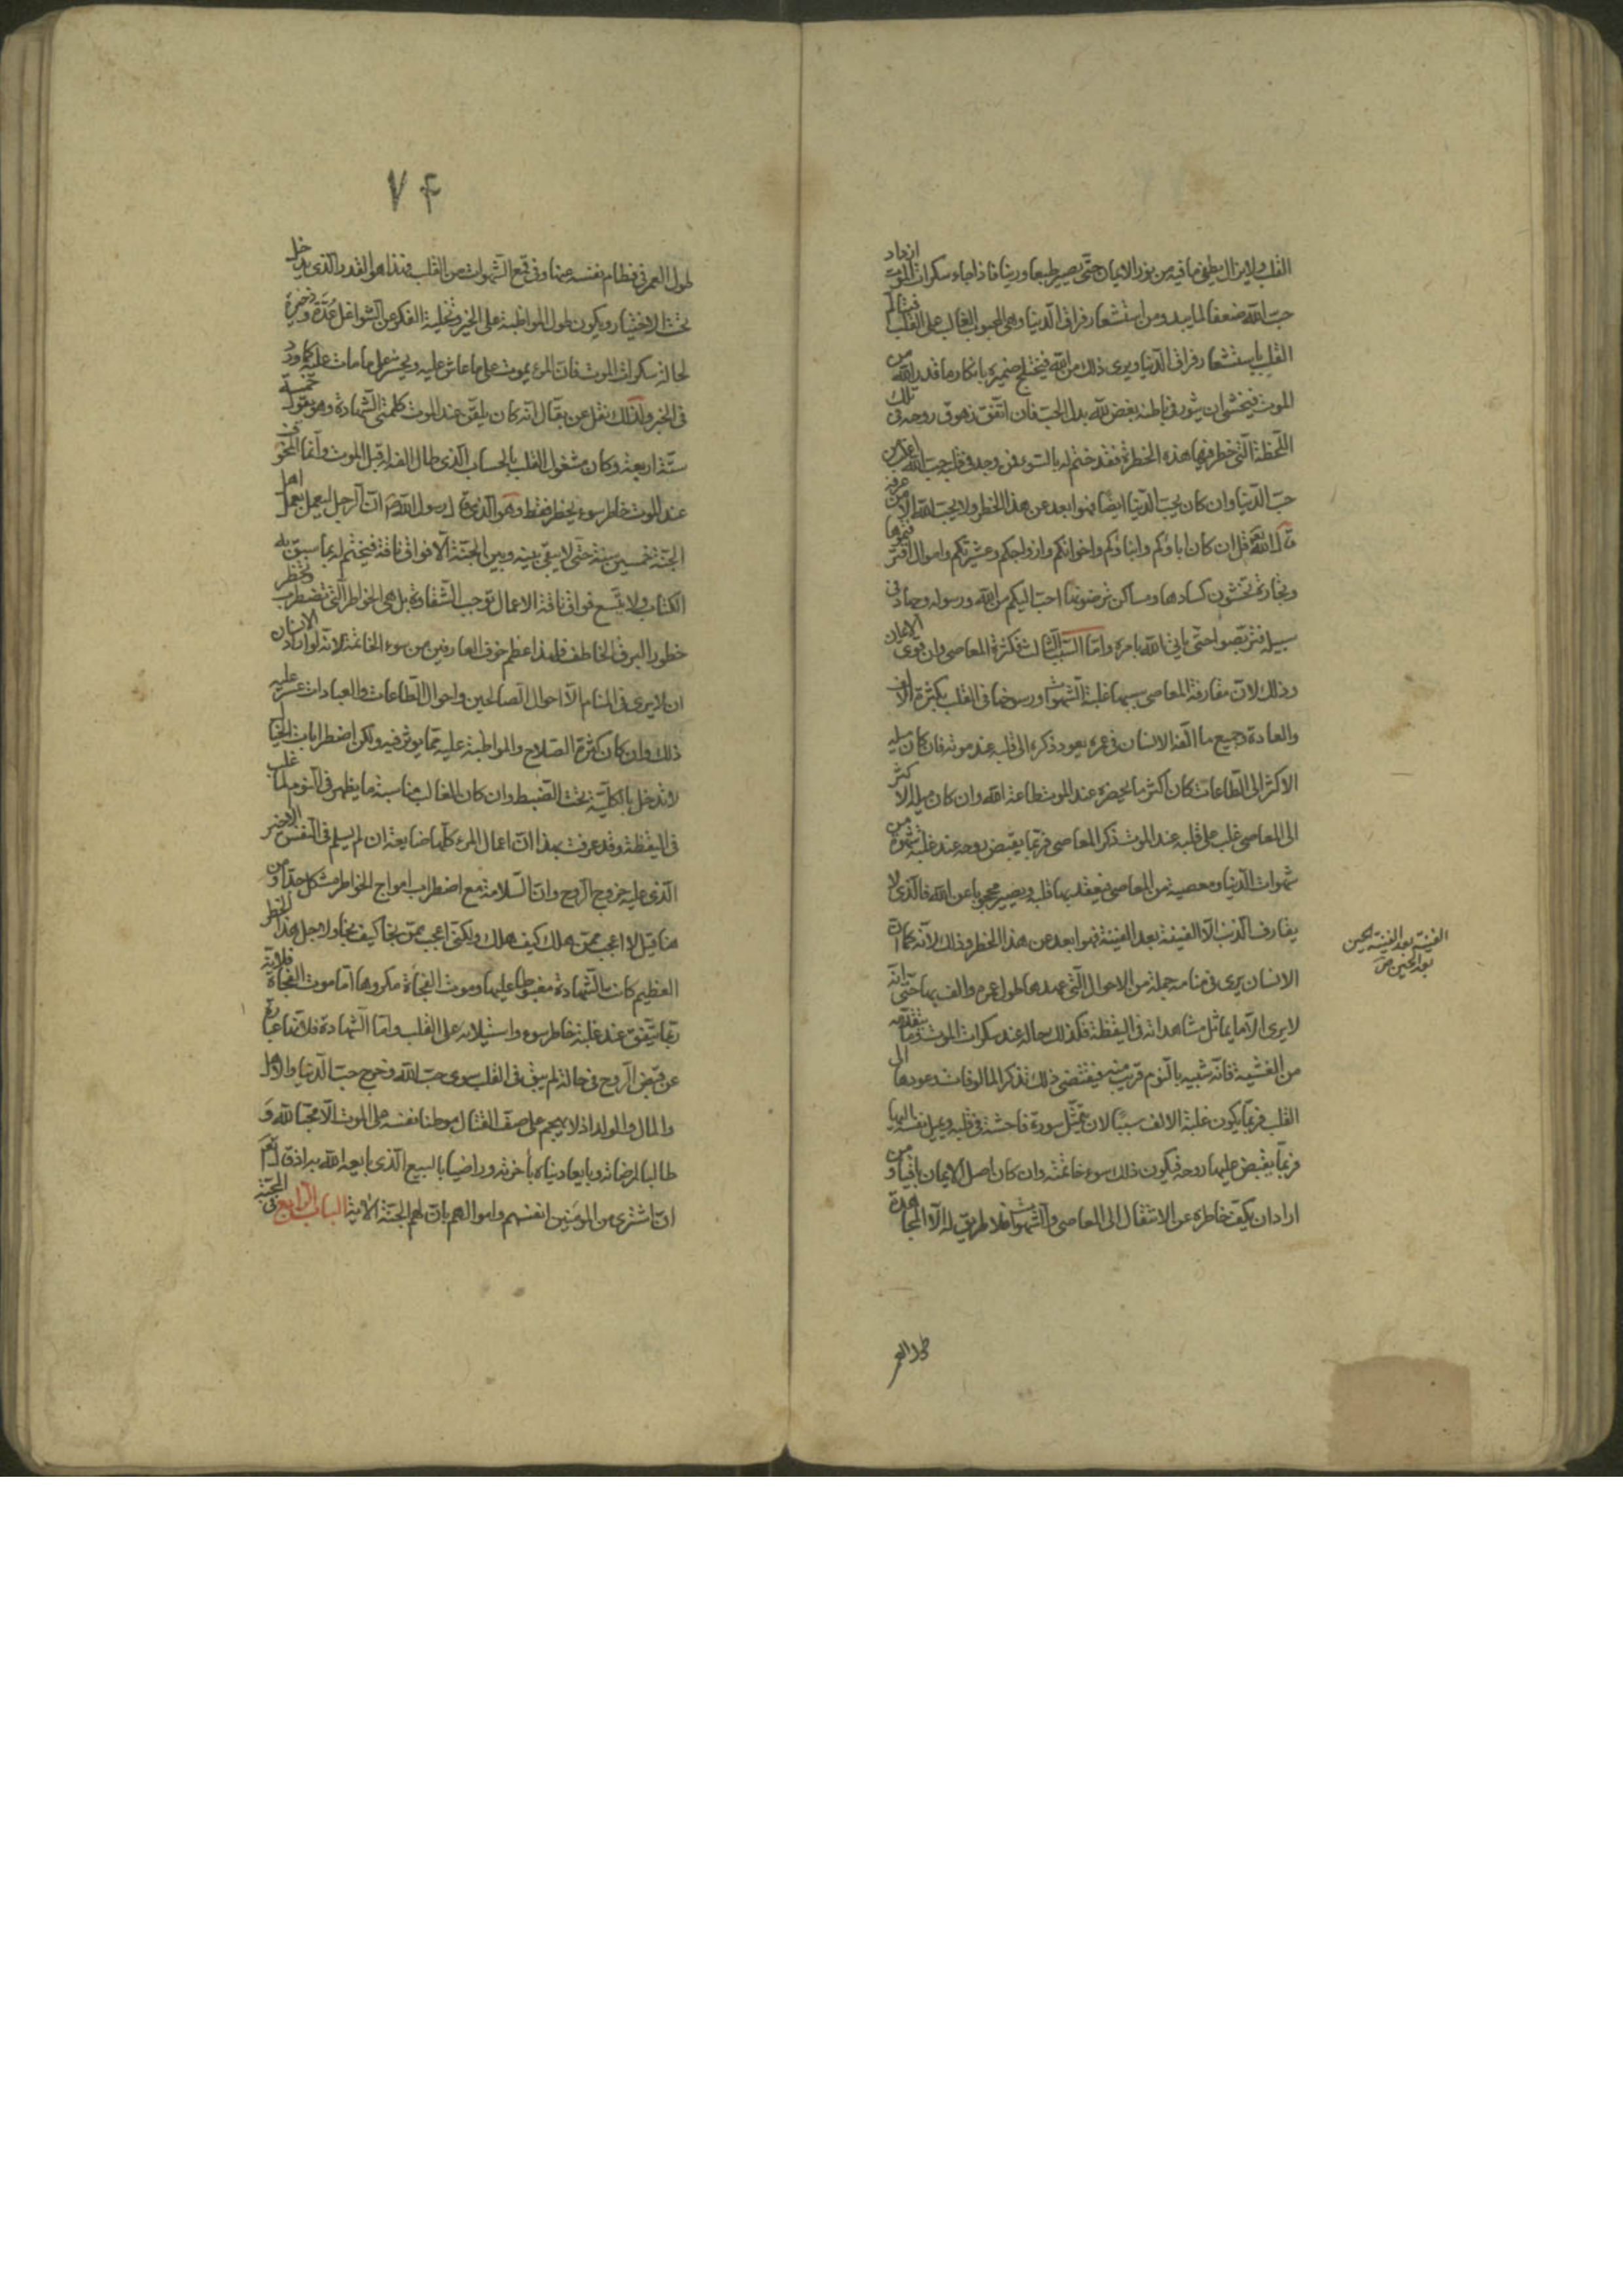 القلب ولا يزال يطفئ ما فيه من نور الايمان حتّى يصير طبعا ورينا فاذا جاء سكرات الموت ازداد
حبّ اللّه ضعفا لما يبدو من استشعار فراق الدّنيا وهى المحبوب الغالب على القلب فيتألم
القلب باستشعار فراق الدّنيا ويرى ذلك من اللّه فيختلج ضميره بانكار ما قدر اللّه من
الموت فيخشى ان يثور فى باطنه بغض للّه بدل الحبّ فان اتّفق زهوق روحه فى تلك
اللّحظة الّتى خطر فيها هذه الخطرة فقد ختم له بالسّوء فمن وجد فى قلبه حبّ اللّه اغلب من
حبّ الدّنيا وان كان يحبّ الدّنيا ايضًا فهو ابعد عن هذا الخطر ولا يحبّ اللّه الّا من عرفه
قال اللّه تع قل ان كان اباؤكم وابناؤكم واخوانكم وازواجكم وعشيرتكم واموال اقترفتموها
وتجارة تخشون كسادها ومساكن ترضونها احبّ اليكم من اللّه ورسوله وجهاد فى
سبيله فتربّصوا حتّى ياتى اللّه بامره وامّا السّبب الثّالث فكثرة المعاصى وان قوى الايمان
وذلك لانّ مقارفة المعاصى سببها غلبة الشّهوات ورسوخها فى القلب بكثرة الالف
والعادة وجميع ما الفه الانسان فى عمره يعود ذكره الى قلبه عند موته فان كان ميله
الاكثر الى الطّاعات كان اكثر ما يحضره عند الموت طاعة اللّه وان كان ميله الاكثر
الى المعاصى غلب على قلبه عند الموت ذكر المعاصى فربّما يقبض روحه عند غلبة شهوة من
شهوات الدّنيا ومعصية من المعاصى فيعقد بها قلبه ويصير محجوبا عن اللّه فالّذى لا
يقارف الذّنب الّا الفينة بعد الفينة فهو ابعد عن هذا الخطر وذلك لانّه كما انّ
الانسان يرى فى منامه جملة من الاحوال الّتى عهدها طول عمره والف بها حتّى انّه
لا يرى الّا ما يماثل مشاهداته فى اليقظة فكذلك حاله عند سكرات الموت وما يتقدّمه
من الغشية فانّه شبيه بالنّوم قريب منه فيقتضى ذلك تذكر المالوفات وعودها الى
القلب فربّما يكون غلبة الالف سببًا لان يتمثّل صورة فاحشة فى قلبه ويميل نفسه اليها
فربّما يقبض عليها روحه فيكون ذلك سوء خاتمته وان كان اصل الايمان باقيا ومن
اراد ان يكفّ خاطره عن الانتقال الى المعاصى والشّهوات فلا طريق له الّا المجاهدة
الفينة بعد الفينة الحين
بعد الحين ص
طول العمر
٧٤
طول العمر فى فطام نفسه عنها وفى قمع الشّهوات من القلب فهذا هو القدر الّذى يدخل
تحت الاختيار ويكون طول المواظبة على الخير وتخلية الفكر عن الشّواغل عُدّة وذخيرة
لحالة سكرات الموت فانّ المرء يموت على ما عاش عليه ويحشر على ما مات عليه كما ورد
فى الخبر ولذلك نقل عن بقّال انّه كان يلقن عند الموت كلمتى الشّهادة وهو يقول خمسة
ستّة اربعة وكان مشغول القلب بالحساب الّذى طال الفه له قبل الموت وانّما المخوّف
عند الموت خاطر سوء يخطر فقط وهو الّذى قال رسول اللّه ص انّ الرجل ليعمل بعمل اهل
الجنّة خمسين سنة حتّى لا يبقى بينه وبين الجنّة الّا فواق ناقة فيختم له بما سبق به
الكتاب ولا يتّسع فواق ناقة الاعمال توجب الشّقاوة بل هى الخواطر الّتى تضطرب وتخطر
خطور البرق الخاطف فلهذا عظم خوف العارفين من سوء الخاتمة لانّه لو اراد الانسان
ان لا يرى فى المنام الّا احوال الصّالحين واحوال الطّاعات والعبادات عسر عليه
ذلك وان كان كثرة الصّلاح والمواظبة عليه ممّا يوثر فيه ولكن اضطرابات الخيال
لا تدخل بالكليّة تحت الضّبط وان كان الغالب مناسبة ما يظهر فى النّوم لما غلب
فى اليقظة وقد عرفت بهذا انّ اعمال المرء كلّها ضايعة ان لم يسلم فى النّفس الاخير
الّذى عليه خروج الرّوح وانّ السّلامة مع اضطراب امواج الخواطر مشكل جدّا ومن
هنا قيل لا اعجب ممّن هلك كيف هلك ولكنّى اعجب ممّن نجا كيف نجا ولاجل هذا الخطر
العظيم كانت الشّهادة مغبوطا عليها وموت الفجأة مكروها امّا موت الفجأة فلانّه
ربّما يتّفق عند غلبة خاطر سوء واستيلائه على القلب وامّا الشّهادة فلانّها عبارة
عن قبض الرّوح فى حالة لم يبق فى القلب سوى حبّ اللّه وخرج حبّ الدّنيا والاهل
والمال والولد اذ لا يهجم على صفّ القتال موطنا نفسه على الموت الّا محبّا للّه و
طالبا لمرضاته وبايعا دنياه بآخرته وراضيا بالبيع الّذى بايعه اللّه به اذ قال تع
انّ اللّه اشترى من المؤمنين انفسهم واموالهم بانّ لهم الجنّة الآية الباب الرّابع فى المحبّة